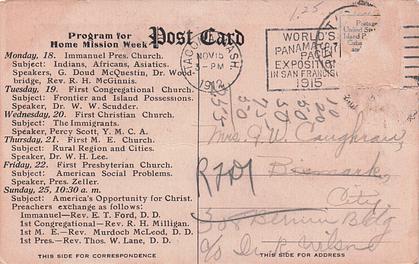 1.25
Program for
Home Mission Week
Post Card
Monday, 18. Immanuel Pres. Church.
Subject: Indians, Africans, Asiatics.
Speakers, G. Doud McQuestin, Dr. Wool-
bridge, Rev. R. H. McGinnis.
Tuesday, 19. First Congregational Church.
Subject: Frontier and Island Possessions.
Speaker, Dr. W. W. Scudder.
Wednesday, 20. First Christian Church.
Subject: The Immigrants.
Speaker, Percy Scott, Y. M. C. A.
Thursday, 21. First M. E. Church.
Subject: Rural Region and Cities.
Speaker, Dr. W. H. Lee.
Friday, 22. First Presbyterian Church.
Subject: American Social Problems.
Speaker, Pres. Zeller.
Sunday, 25, 10:30 a. m.
Subject: America's Opportunity for Christ.
Preachers exchange as follows:
Immanuel—Rev. E. T. Ford, D. D.
1st Congregational—Rev. R. H. Milligan.
1st M. E.—Rev. Murdoch McLeod, D. D.
1st Pres.—Rev. Thos. W. Lane, D. D.
THIS SIDE FOR CORRESPONDENCE
TACOMA, WASH.
NOV 15
3-PM
1912
WORLD'S
PANAMA
PACIF
EXPOSITION
IN SAN FRANCISCO
1915
Postage
Island P
Cuba
Mrs. J. W. Caughran,
R 701
City.
Bldg
c/o Dr. Wilson
THIS SIDE FOR ADDRESS